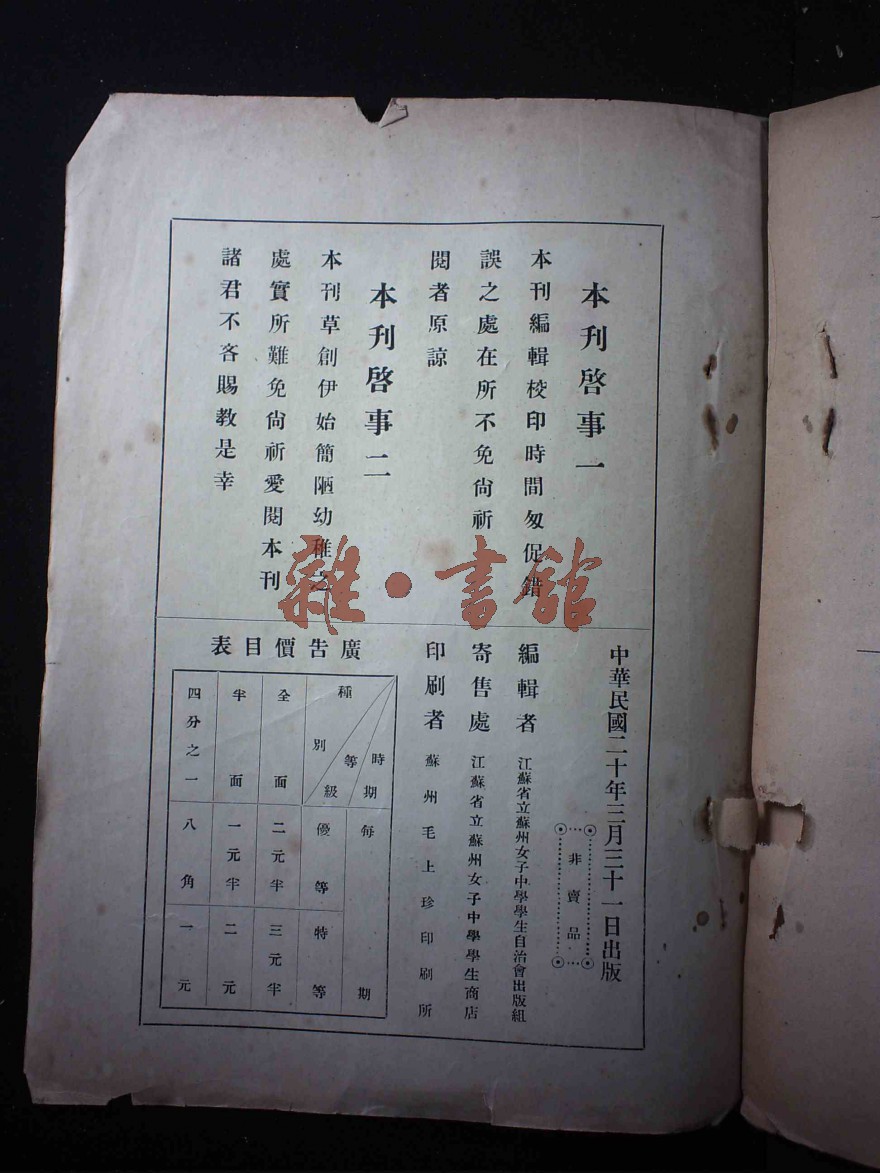 本刊啓事一
本刊編輯校印時間匆促錯
誤之處在所不免尙祈
閱者原諒
本刊啓事二
本刊草創伊始簡陋幼稚之
處實所難免尙祈愛閱本刊
諸君不吝賜教是幸
中華民國二十年三月三十一日出版
非賣品
編輯者 江蘇省立蘇州女子中學學生自治會出版組
寄售處 江蘇省立蘇州女子中學學生商店
印刷者 蘇州毛上珍印刷所
廣告價目表
時期 等級 種別 每期
優等 特等
全面 二元半 三元半
半面 一元半 二元
四分之一 八角 一元
雜·書館